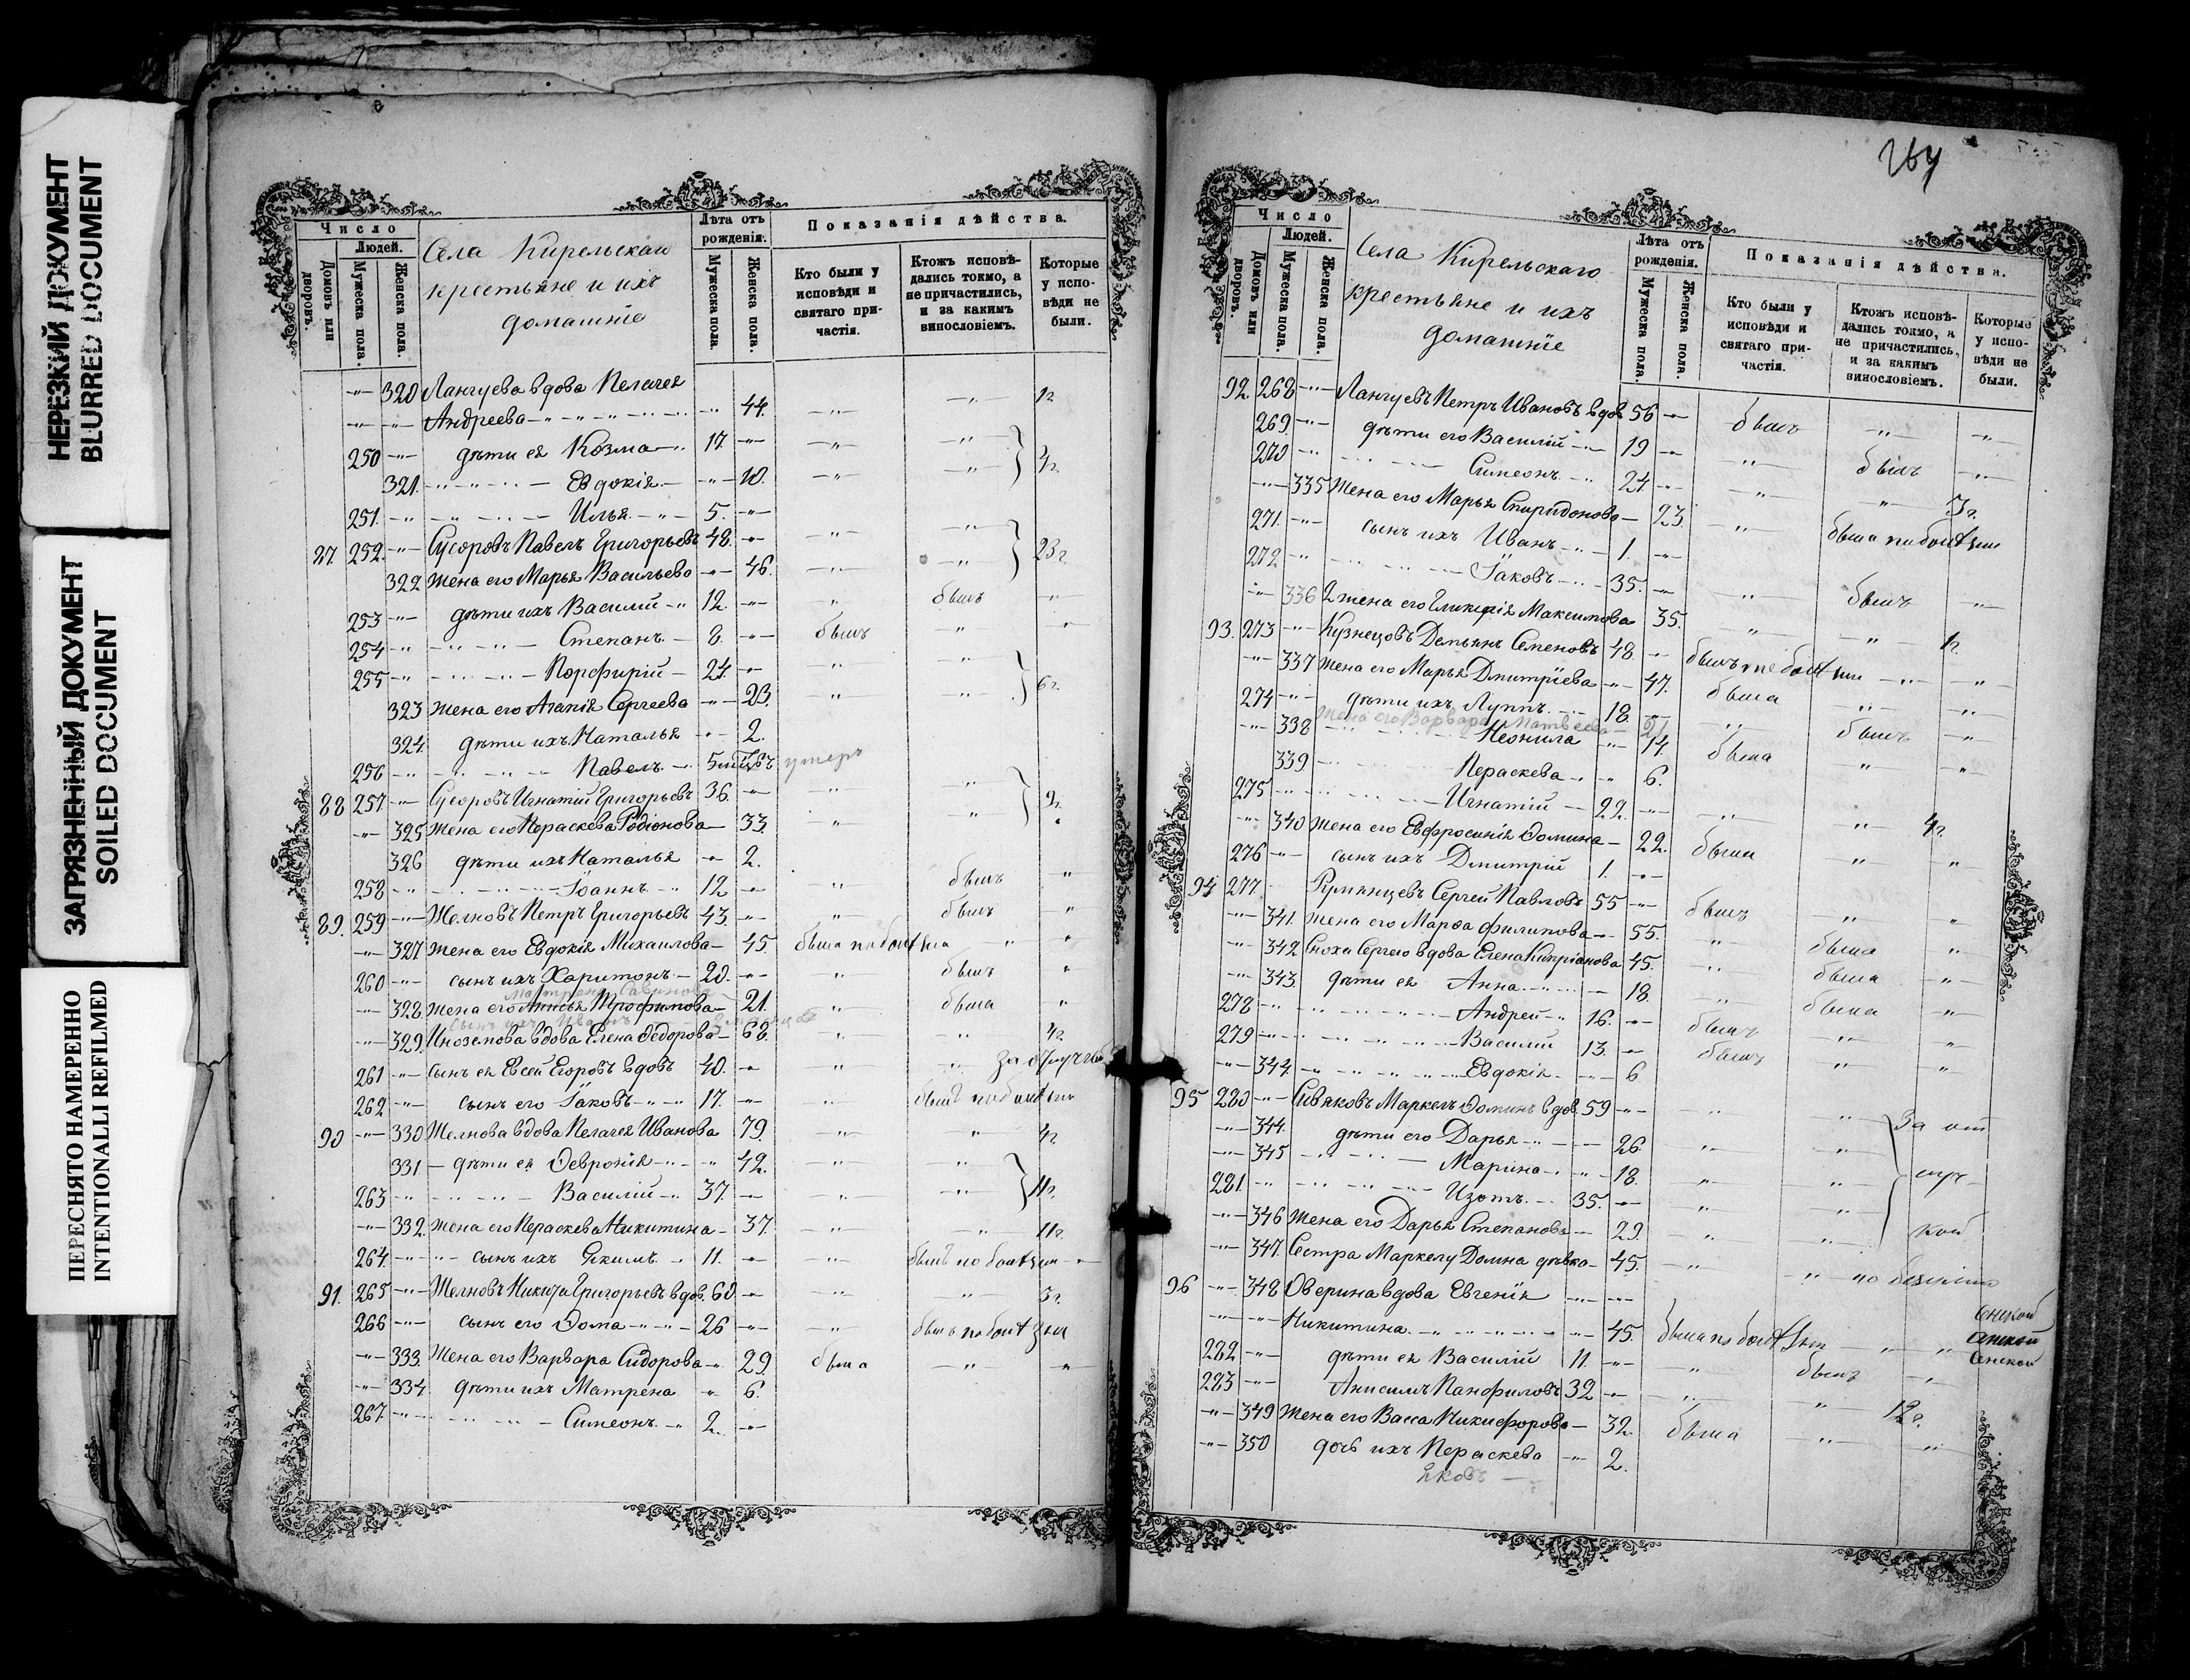 НЕРЕЗКИЙ ДОКУМЕНТ
BLURRED DOCUMENT
ЗАГРЯЗНЕННЫЙ ДОКУМЕНТ
SOILED DOCUMENT
ПЕРЕСНЯТО НАМЕРЕННО
INTENTIONALLI REFILMED
Число
Людей.
Домовъ или дворовъ.
Мужеска пола.
Женска пола.
Села Кирельскаго
крестьяне и ихъ
домашніе
Лѣта отъ рожденія.
Мужеска пола.
Женска пола.
Показанія дѣйства.
Кто были у исповѣди и святаго причастія.
Ктожъ исповѣдались токмо, а не причастились, и за какимъ винословіемъ.
Которые у исповѣди не были.
320 Лангуева вдова Пелагея
Андреева 44.
250 дѣти ея Козма 17.
321. Евдокія 10.
251. Илья 5.
87. 252. Сусоровъ Павелъ Григорьевъ 48. 23 г.
322 Жена его Марья Васильева 46.
253 дѣти ихъ Василій 12. былъ
254 Степанъ 8. былъ
255 Порфирій 24. 6 г.
323 Жена его Агапія Сергеева 23.
324. дѣти ихъ Наталья 2.
256 Павелъ 5 умеръ
88 257 Сусоровъ Игнатій Григорьевъ 36.
325 Жена его Пераскева Родіонова 33.
326 дѣти ихъ Наталья 2.
258 Іоаннъ 12 былъ
89. 259 Желновъ Петръ Григорьевъ 43. былъ
327 Жена его Евдокія Михаилова 45. была
260 сынъ ихъ Харитонъ 20. былъ
Матрена
328. Жена его Анисья Трофимова 21. была
сынъ ихъ Иванъ
329. Иноземова вдова Елена Ѳедорова 68. 4 г.
261 Сынъ ея Евсей Егоровъ вдовъ 40.
262 сынъ его Іаковъ 17. былъ
90 330 Желнова вдова Пелагея Иванова 79. 4 г.
331 дѣти ея Февронія 42.
263 Василій 37. 11 г.
332. Жена его Пераскева Никитина 37. 11 г.
264. сынъ ихъ Екимъ 11. былъ
91. 265 Желновъ Никита Григорьевъ вдов. 60. 3 г.
266 сынъ его Ѳома 26 былъ
333. Жена его Варвара Сидорова 29. была
334 дѣти ихъ Матрена 6.
267. Симеонъ 2.
264
Число
Людей.
Домовъ или дворовъ.
Мужеска пола.
Женска пола.
Села Кирельскаго
крестьяне и ихъ
домашніе
Лѣта отъ рожденія.
Мужеска пола.
Женска пола.
Показанія дѣйства.
Кто были у исповѣди и святаго причастія.
Ктожъ исповѣдались токмо, а не причастились, и за какимъ винословіемъ.
Которые у исповѣди не были.
92. 268 Лангуевъ Петръ Ивановъ вдов 56 былъ
269. дѣти его Василій 19 былъ
270 Симеонъ 24 3 г.
335 Жена его Марья Спиридонова 23. была
271. сынъ ихъ Иванъ 1.
272 Іаковъ 35. былъ
336 2 жена его Гликерія Максимова 35.
93. 273 Кузнецовъ Демьянъ Семеновъ 48. былъ
337 Жена его Марья Дмитріева 47. была
274 дѣти ихъ Луппъ 18. былъ
Жена его Варвара Матвеева 21
338 Неонила 14. была
339 Пераскева 6.
275 Игнатій 22. 4 г.
340 Жена его Евфросинія Ѳомина 22. была
276 сынъ ихъ Дмитрій 1.
94 277. Румянцевъ Сергей Павловъ 55 былъ
341. Жена его Марѳа Филипова 55. была
342 Сноха Сергею вдова Елена Кипріанова 45. была
343. дѣти ея Анна 18. была
278 Андрей 16. былъ
279 Василій 13. былъ
344. Евдокія 6
95 280 Сивяковъ Маркелъ Ѳоминъ вдов. 59
344. дѣти его Дарья 26. За от
345 Марина 18. луч
281. Изотъ 35. кой
346 Жена его Дарья Степанова 29.
347. Сестра Маркелу Домна дѣвка 45.
96 348 Оверина вдова Евгенія
Никитина 45. была
282 дѣти ея Василій 11. былъ
283 Анисимъ Панфиловъ 32 12 г.
349 Жена его Васса Никифорова 32. была
350 дочь ихъ Пераскева 2.
Яковъ